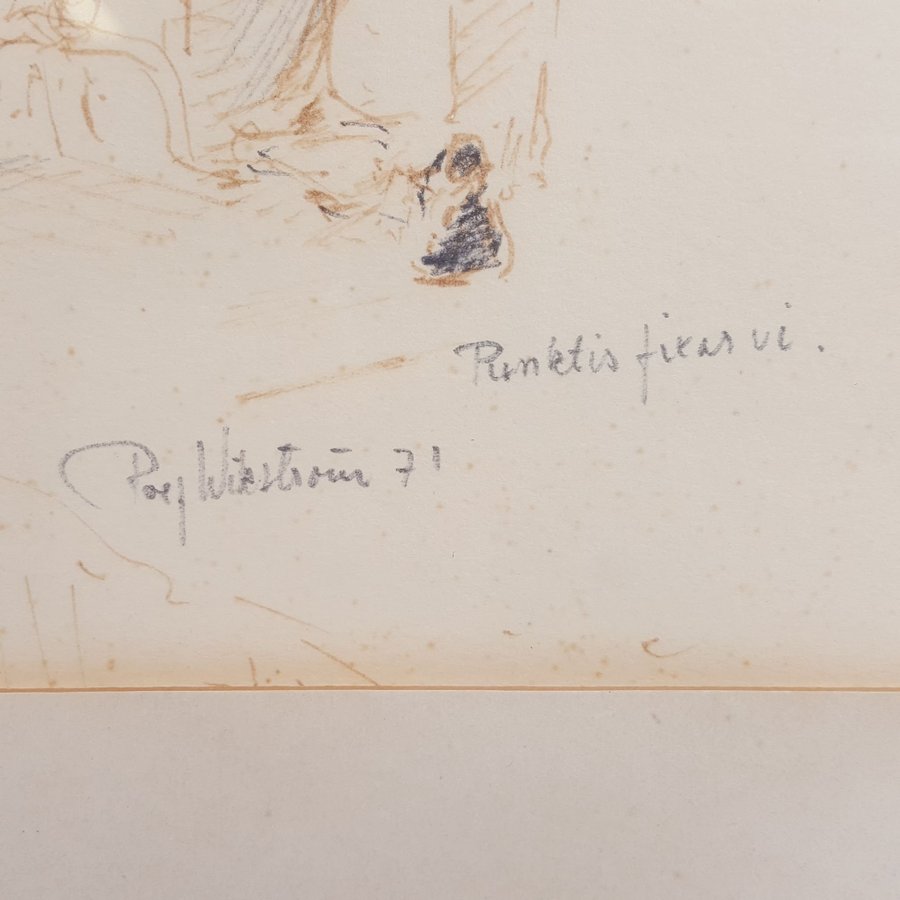 Punktis fikas vi.
Poej Wikström 71